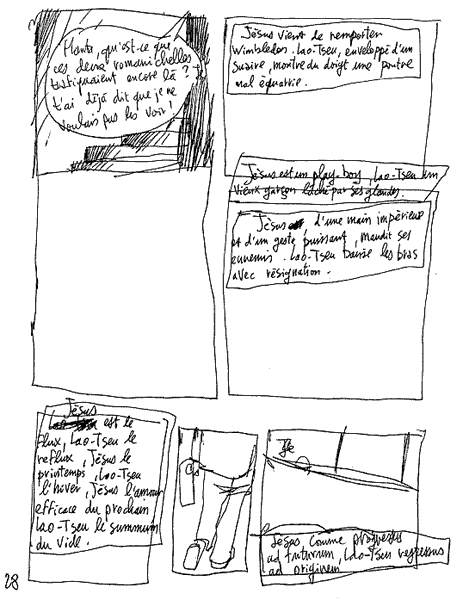 Planta, qu'est-ce que
ces deux romanichelles
trafiquaient encore là ?
t'ai déjà dit que je ne
voulais pas les voir !
Jésus vient de remporter
Wimbledon. Lao-Tseu, enveloppé d'un
suaire, montre du doigt une poutre
mal équarrie.
Jésus est un play-boy, Lao-Tseu un
vieux garçon lâché par ses glandes.
Jésus, d'une main impérieuse
et d'un geste puissant, maudit ses
ennemis. Lao-Tseu baisse les bras
avec résignation.
Jésus
est le
flux, Lao-Tseu le
reflux, Jésus le
printemps, Lao-Tseu
l'hiver, Jésus l'amour
efficace du prochain
Lao-Tseu le summum
du vide.
Jésus, comme progressus
ad futurum, Lao-Tseu regressus
ad originem
28